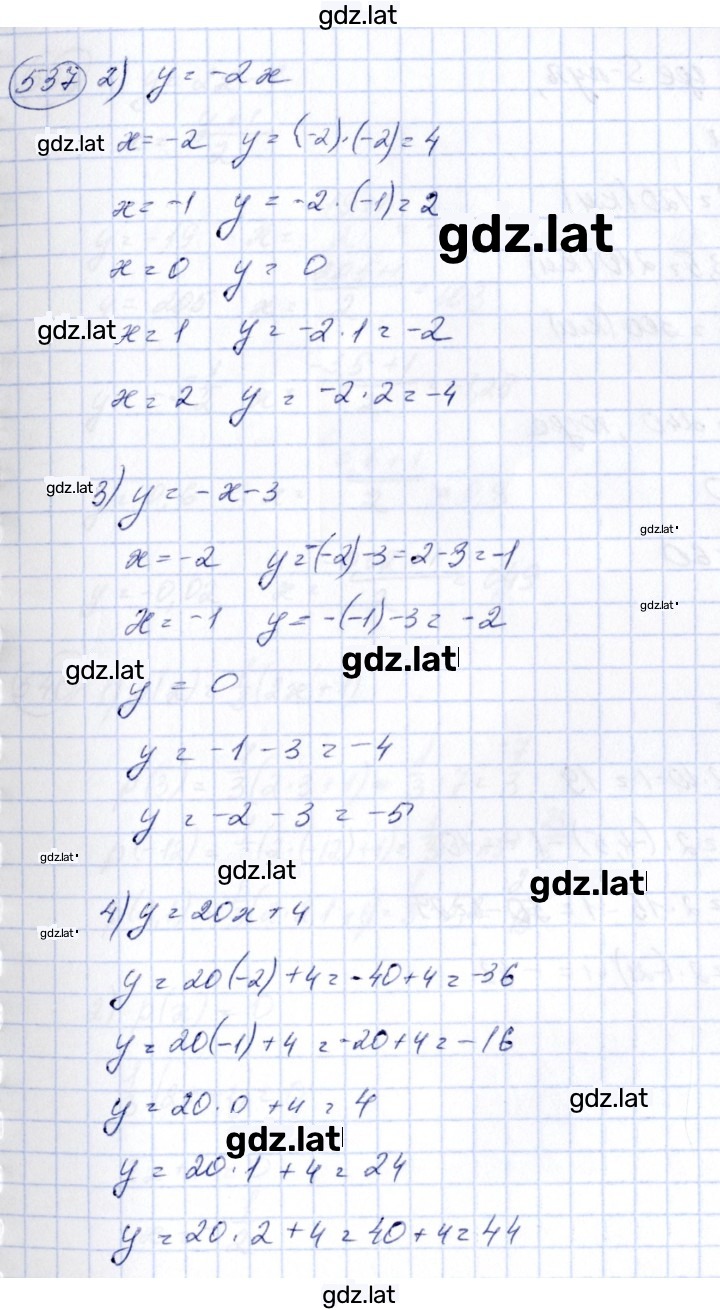 gdz.lat
537 2) y = -2x
gdz.lat x = -2 y = (-2)·(-2) = 4
x = -1 y = -2·(-1) = 2
gdz.lat
x = 0 y = 0
gdz.lat x = 1 y = -2·1 = -2
x = 2 y = -2·2 = -4
gdz.lat 3) y = -x-3
gdz.lat
x = -2 y = -(-2)-3 = 2-3 = -1
gdz.lat
x = -1 y = -(-1)-3 = -2
gdz.lat
gdz.lat
y = 0
y = -1-3 = -4
y = -2-3 = -5
gdz.lat
gdz.lat
gdz.lat
4) y = 20x+4
gdz.lat
y = 20(-2)+4 = -40+4 = -36
y = 20(-1)+4 = -20+4 = -16
gdz.lat
y = 20·0+4 = 4
gdz.lat
y = 20·1+4 = 24
y = 20·2+4 = 40+4 = 44
gdz.lat